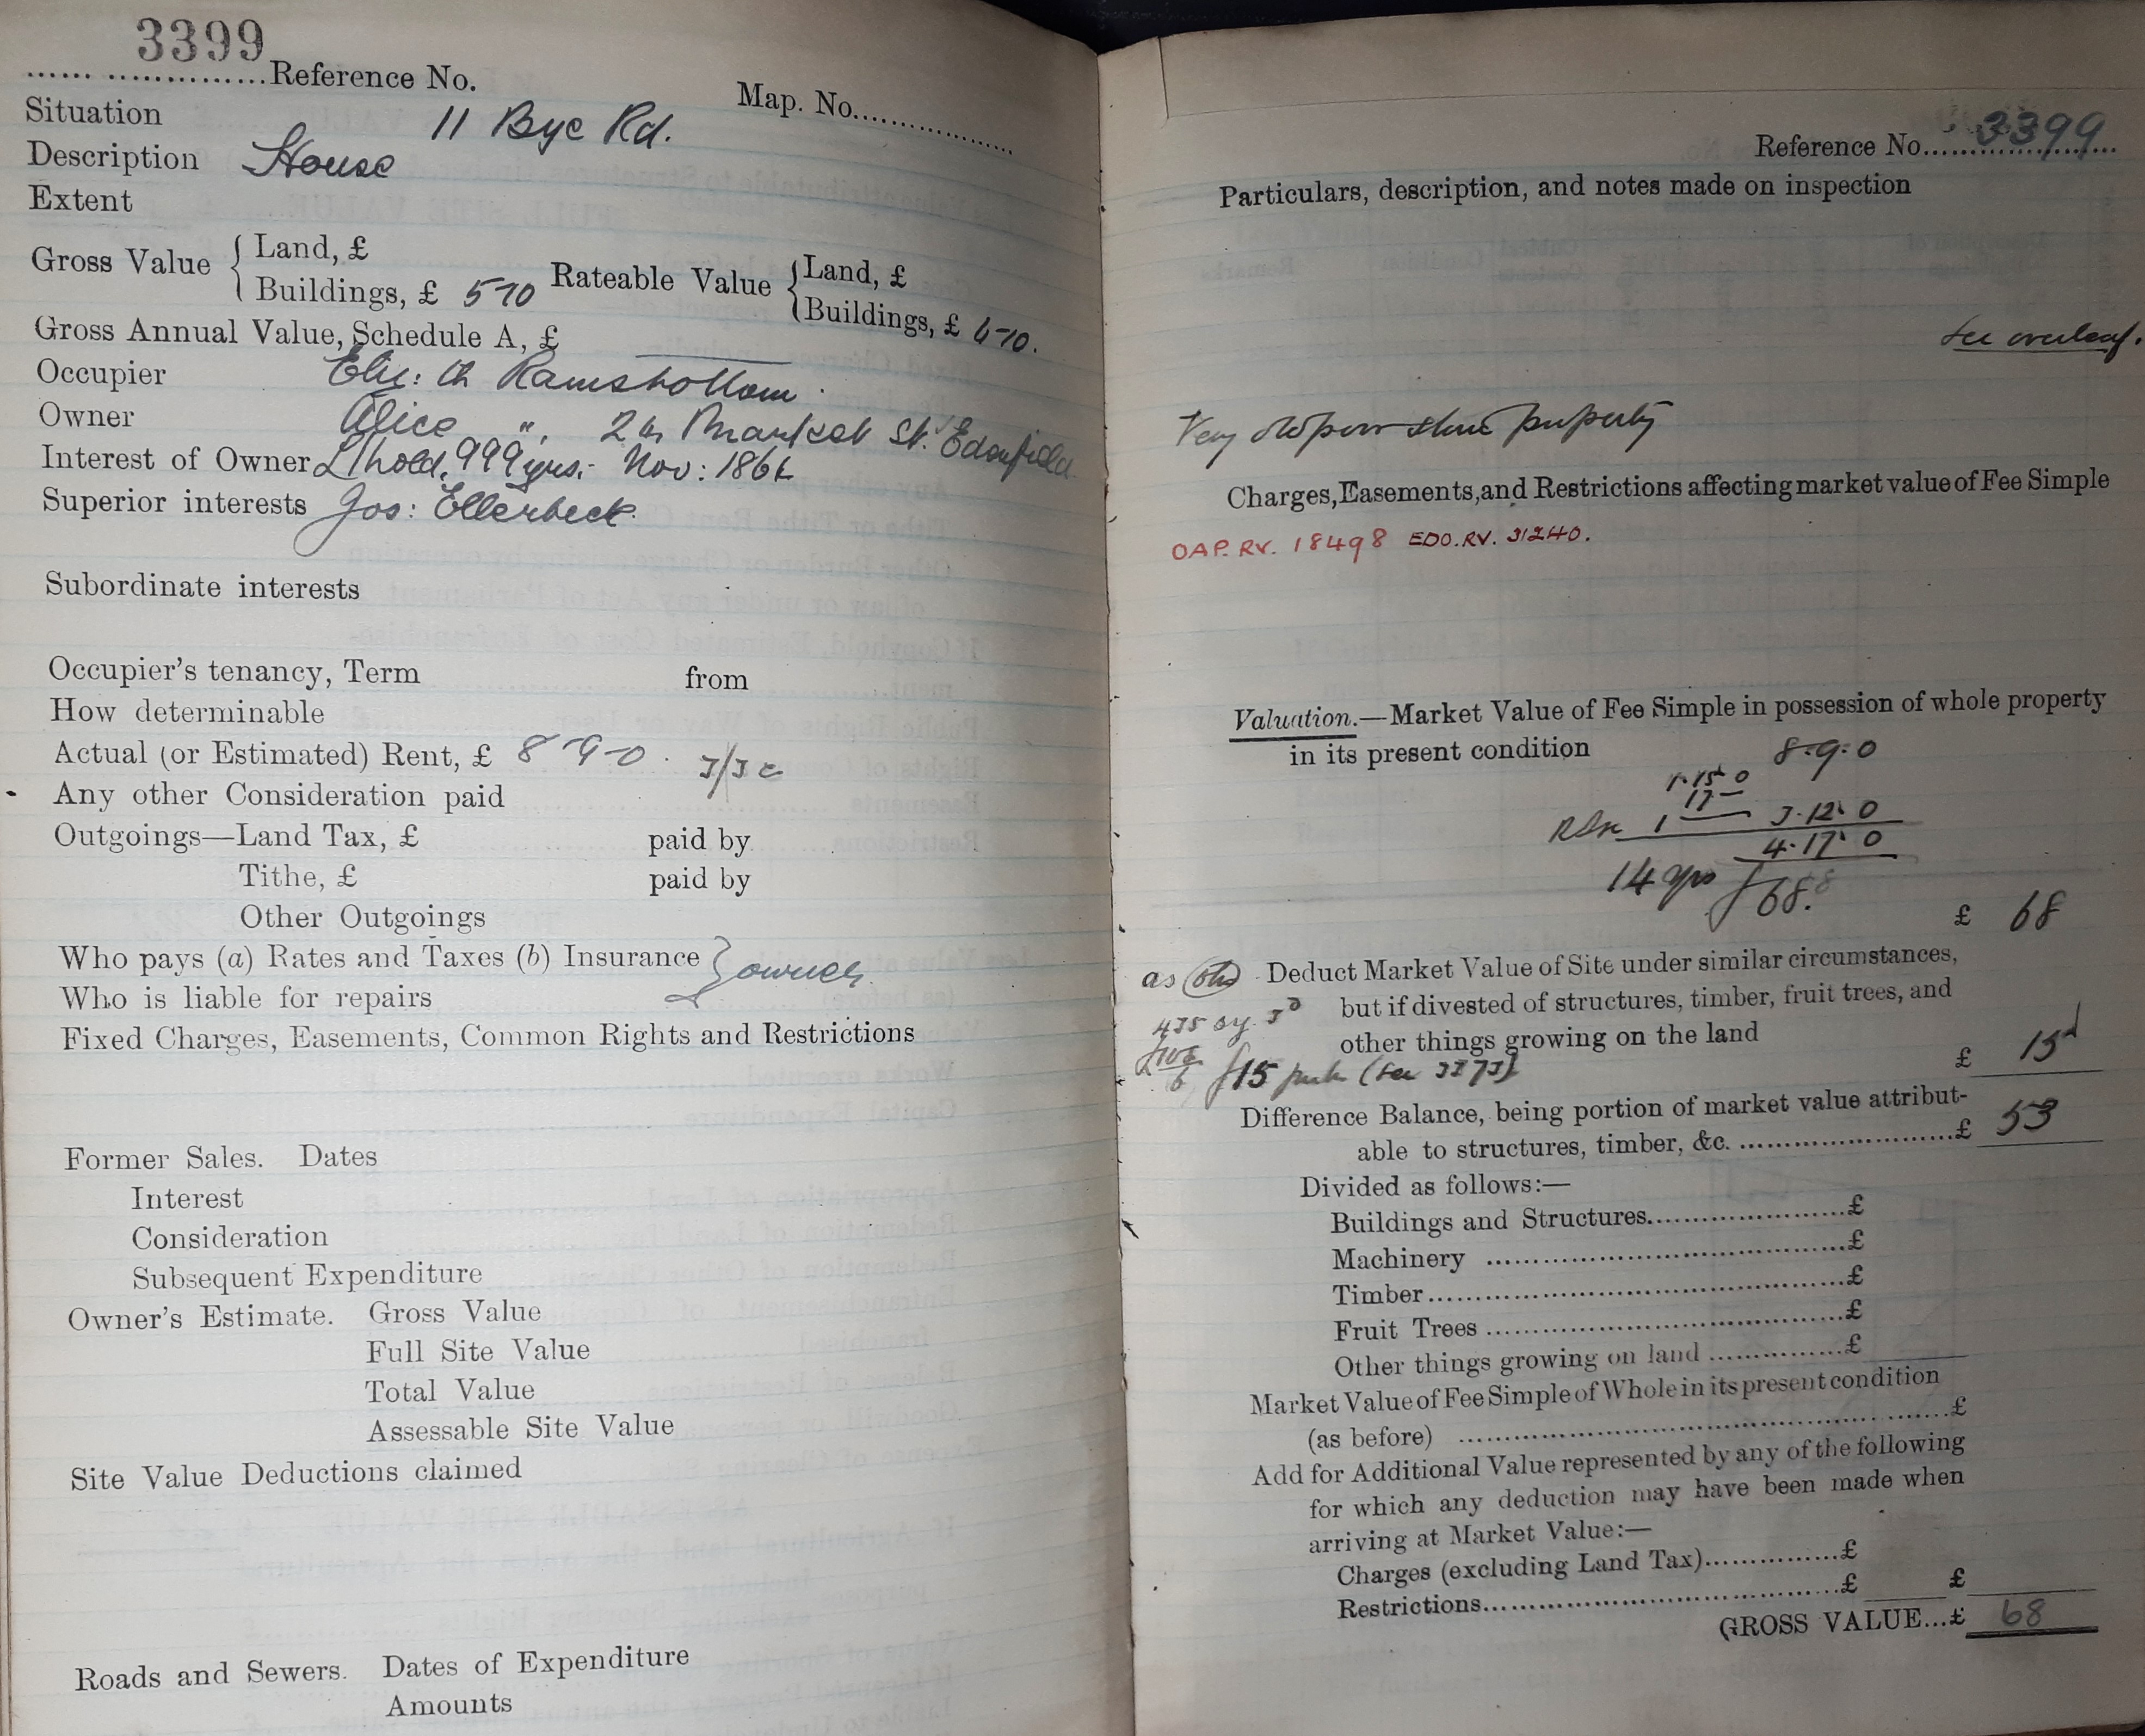 3399
Reference No.
Map. No.
Situation 11 Bye Rd.
Description House
Extent
Gross Value { Land, £
Buildings, £ 5-10
Rateable Value { Land, £
Buildings, £ 4-10.
Gross Annual Value, Schedule A, £
Occupier Eliz: th Ramsbottom
Owner Alice ", 2 Market St. Edenfield
Interest of Owner L/hold, 999 yrs. - Nov: 1866
Superior interests Jos: Ellerbeck
Subordinate interests
Occupier's tenancy, Term from
How determinable
Actual (or Estimated) Rent, £ 8-9-0. 3/3
Any other Consideration paid
Outgoings—Land Tax, £ paid by
Tithe, £ paid by
Other Outgoings
Who pays (a) Rates and Taxes (b) Insurance } owner
Who is liable for repairs
Fixed Charges, Easements, Common Rights and Restrictions
Former Sales. Dates
Interest
Consideration
Subsequent Expenditure
Owner's Estimate. Gross Value
Full Site Value
Total Value
Assessable Site Value
Site Value Deductions claimed
Roads and Sewers. Dates of Expenditure
Amounts
Reference No. 3399
Particulars, description, and notes made on inspection
See overleaf.
Very old poor stone property
Charges, Easements, and Restrictions affecting market value of Fee Simple
OAP. RV. 18498 EDO. RV. 31240.
Valuation.—Market Value of Fee Simple in possession of whole property
in its present condition 8.9.0
1.15.0
17—
1 — 3.12.0
4.17.0
14 yrs £68.
£ 68
as Deduct Market Value of Site under similar circumstances,
but if divested of structures, timber, fruit trees, and
435 sy. 3d
other things growing on the land £ 15
6 £15 (see 3273)
Difference Balance, being portion of market value attribut-
able to structures, timber, &c. £ 53
Divided as follows:—
Buildings and Structures £
Machinery £
Timber £
Fruit Trees £
Other things growing on land £
Market Value of Fee Simple of Whole in its present condition
(as before) £
Add for Additional Value represented by any of the following
for which any deduction may have been made when
arriving at Market Value:—
Charges (excluding Land Tax) £
Restrictions £ £
GROSS VALUE...£ 68